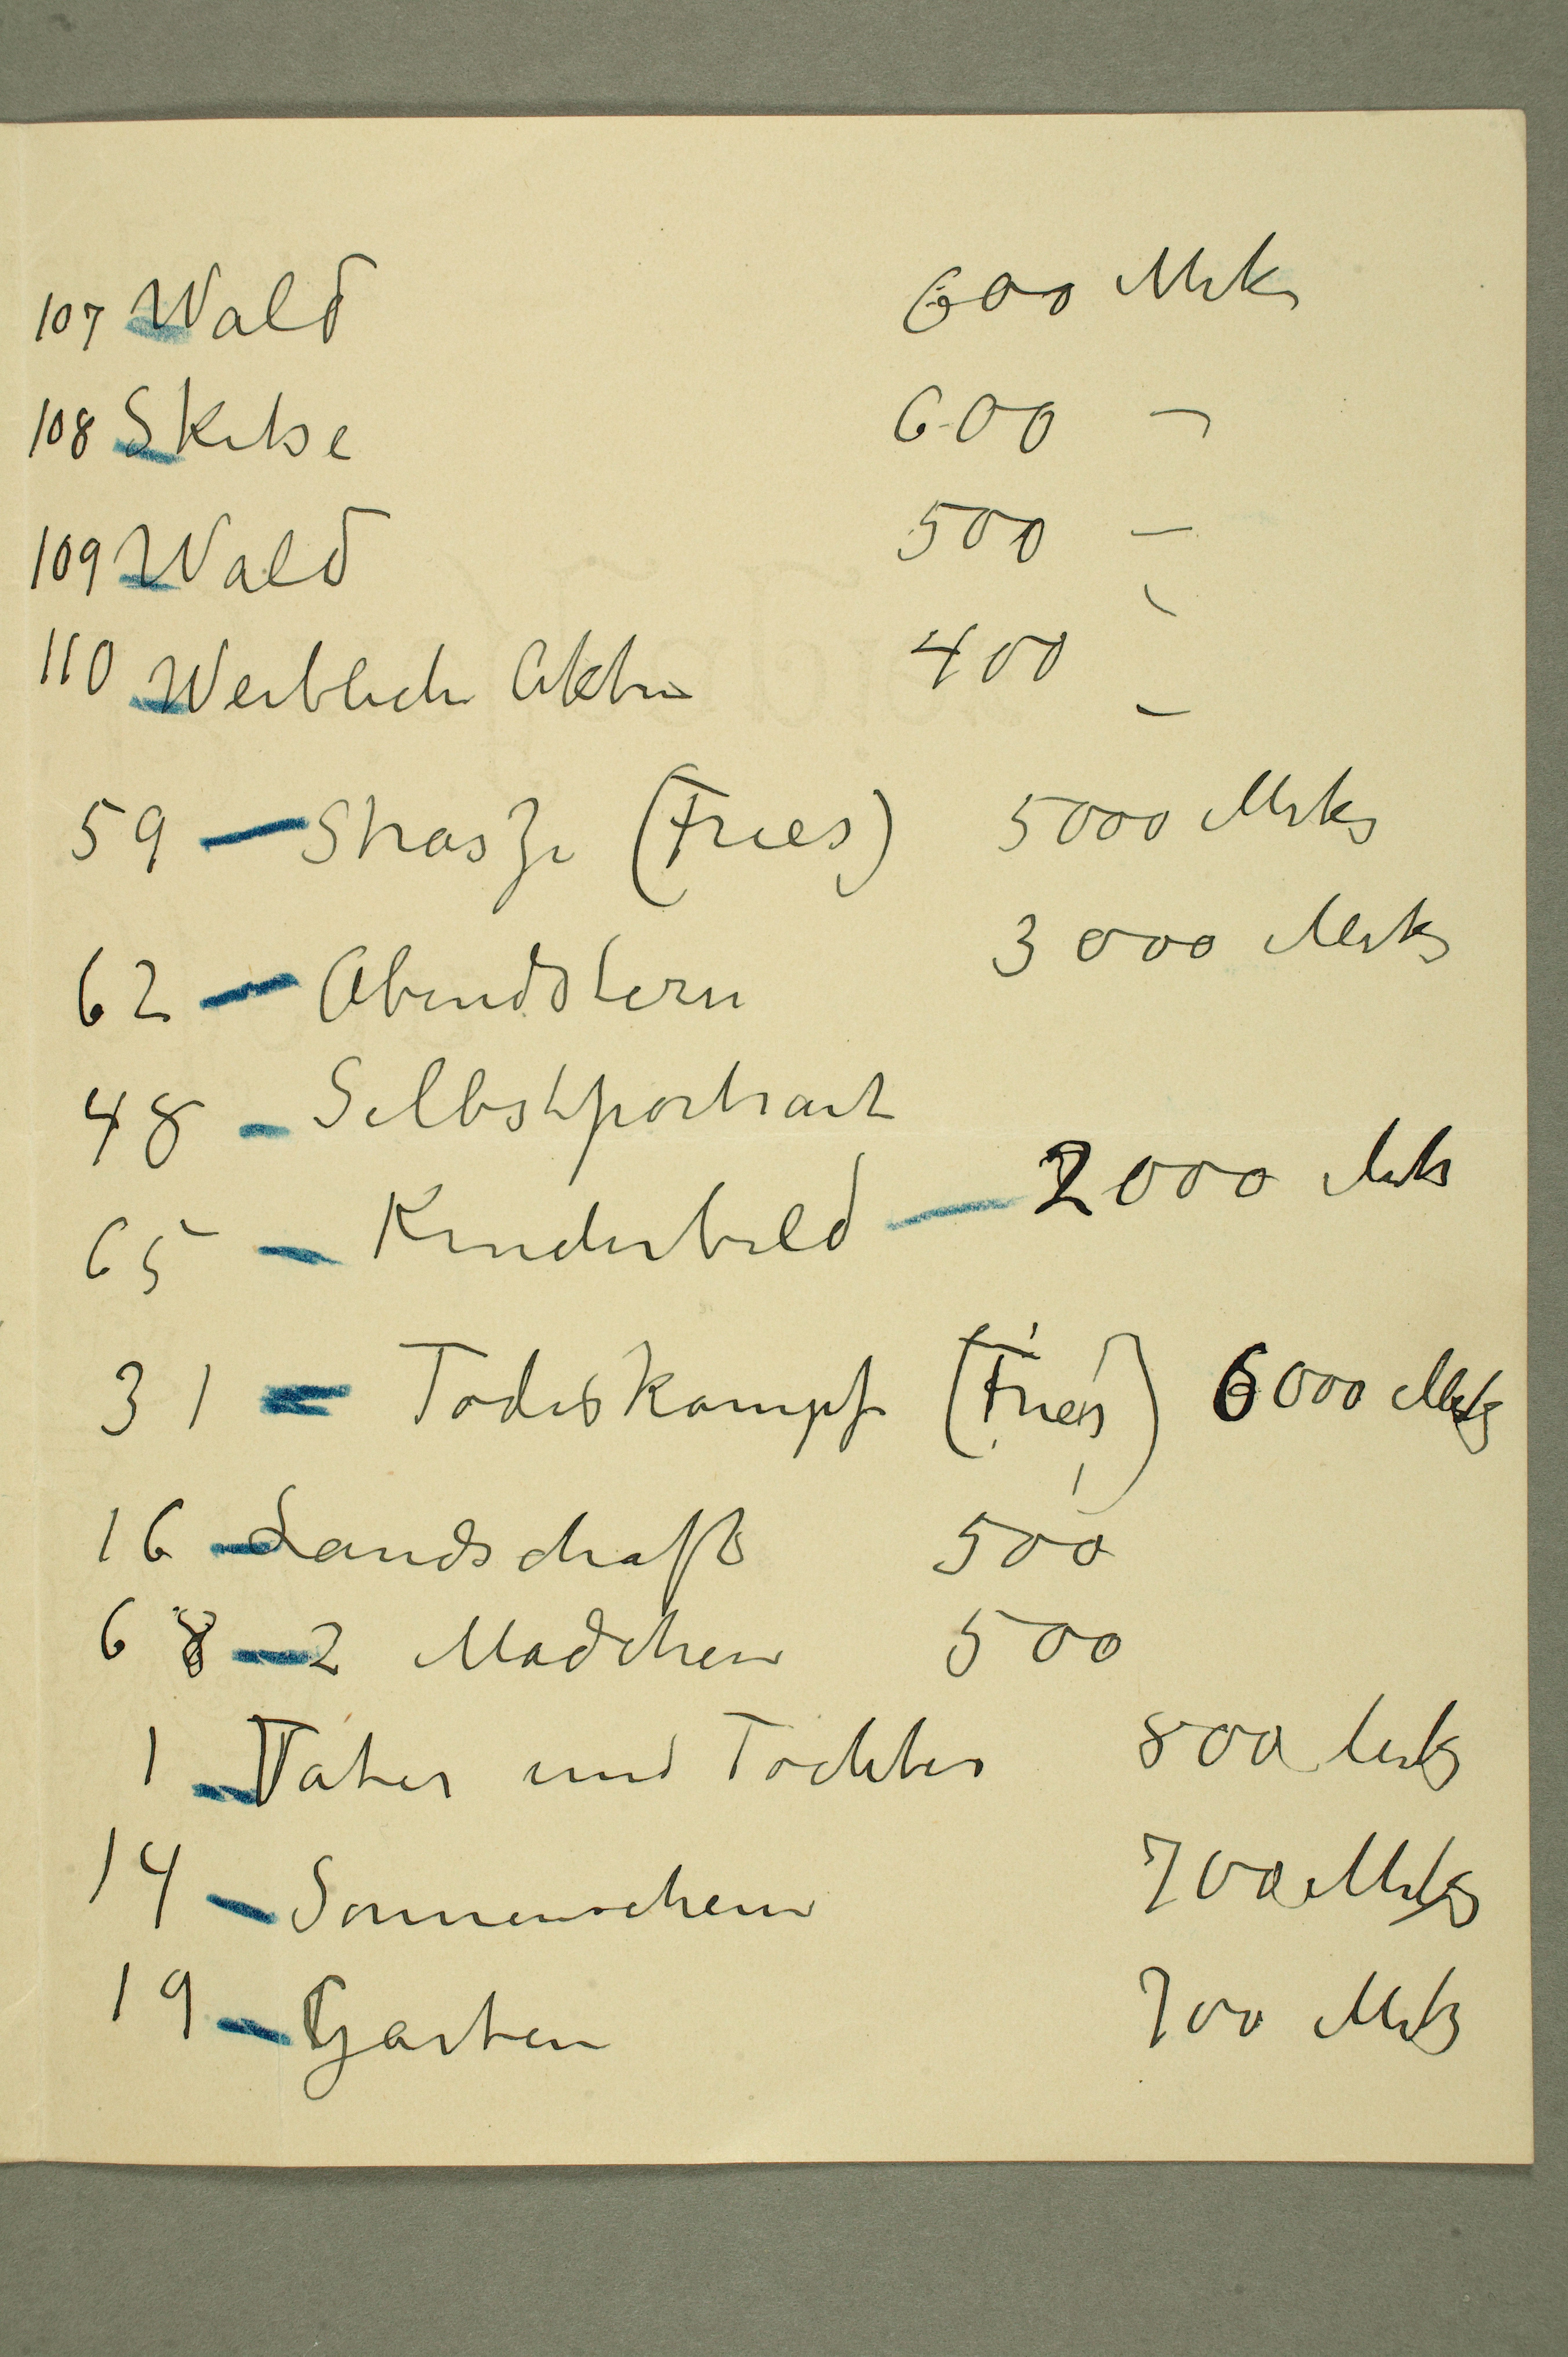 107 Wald 600 Mrk
108 Skitse 600 —
109 Wald 500 —
110 Weibliche Akten 400 —
59 — Strasze (Fries) 5000 Mrks
62 — Abendstern 3000 Mrks
48 — Selbstportrait
65 — Kinderbild — 2000 Mrk
31 — Todeskampf (Fries) 6000 Mrk
16 — Landschaft 500
68 — 2 Madchen 500
1 — Vater und Tochter 800 Mrk
14 — Sonnenschein 700 Mrk
19 — Garten 700 Mrk